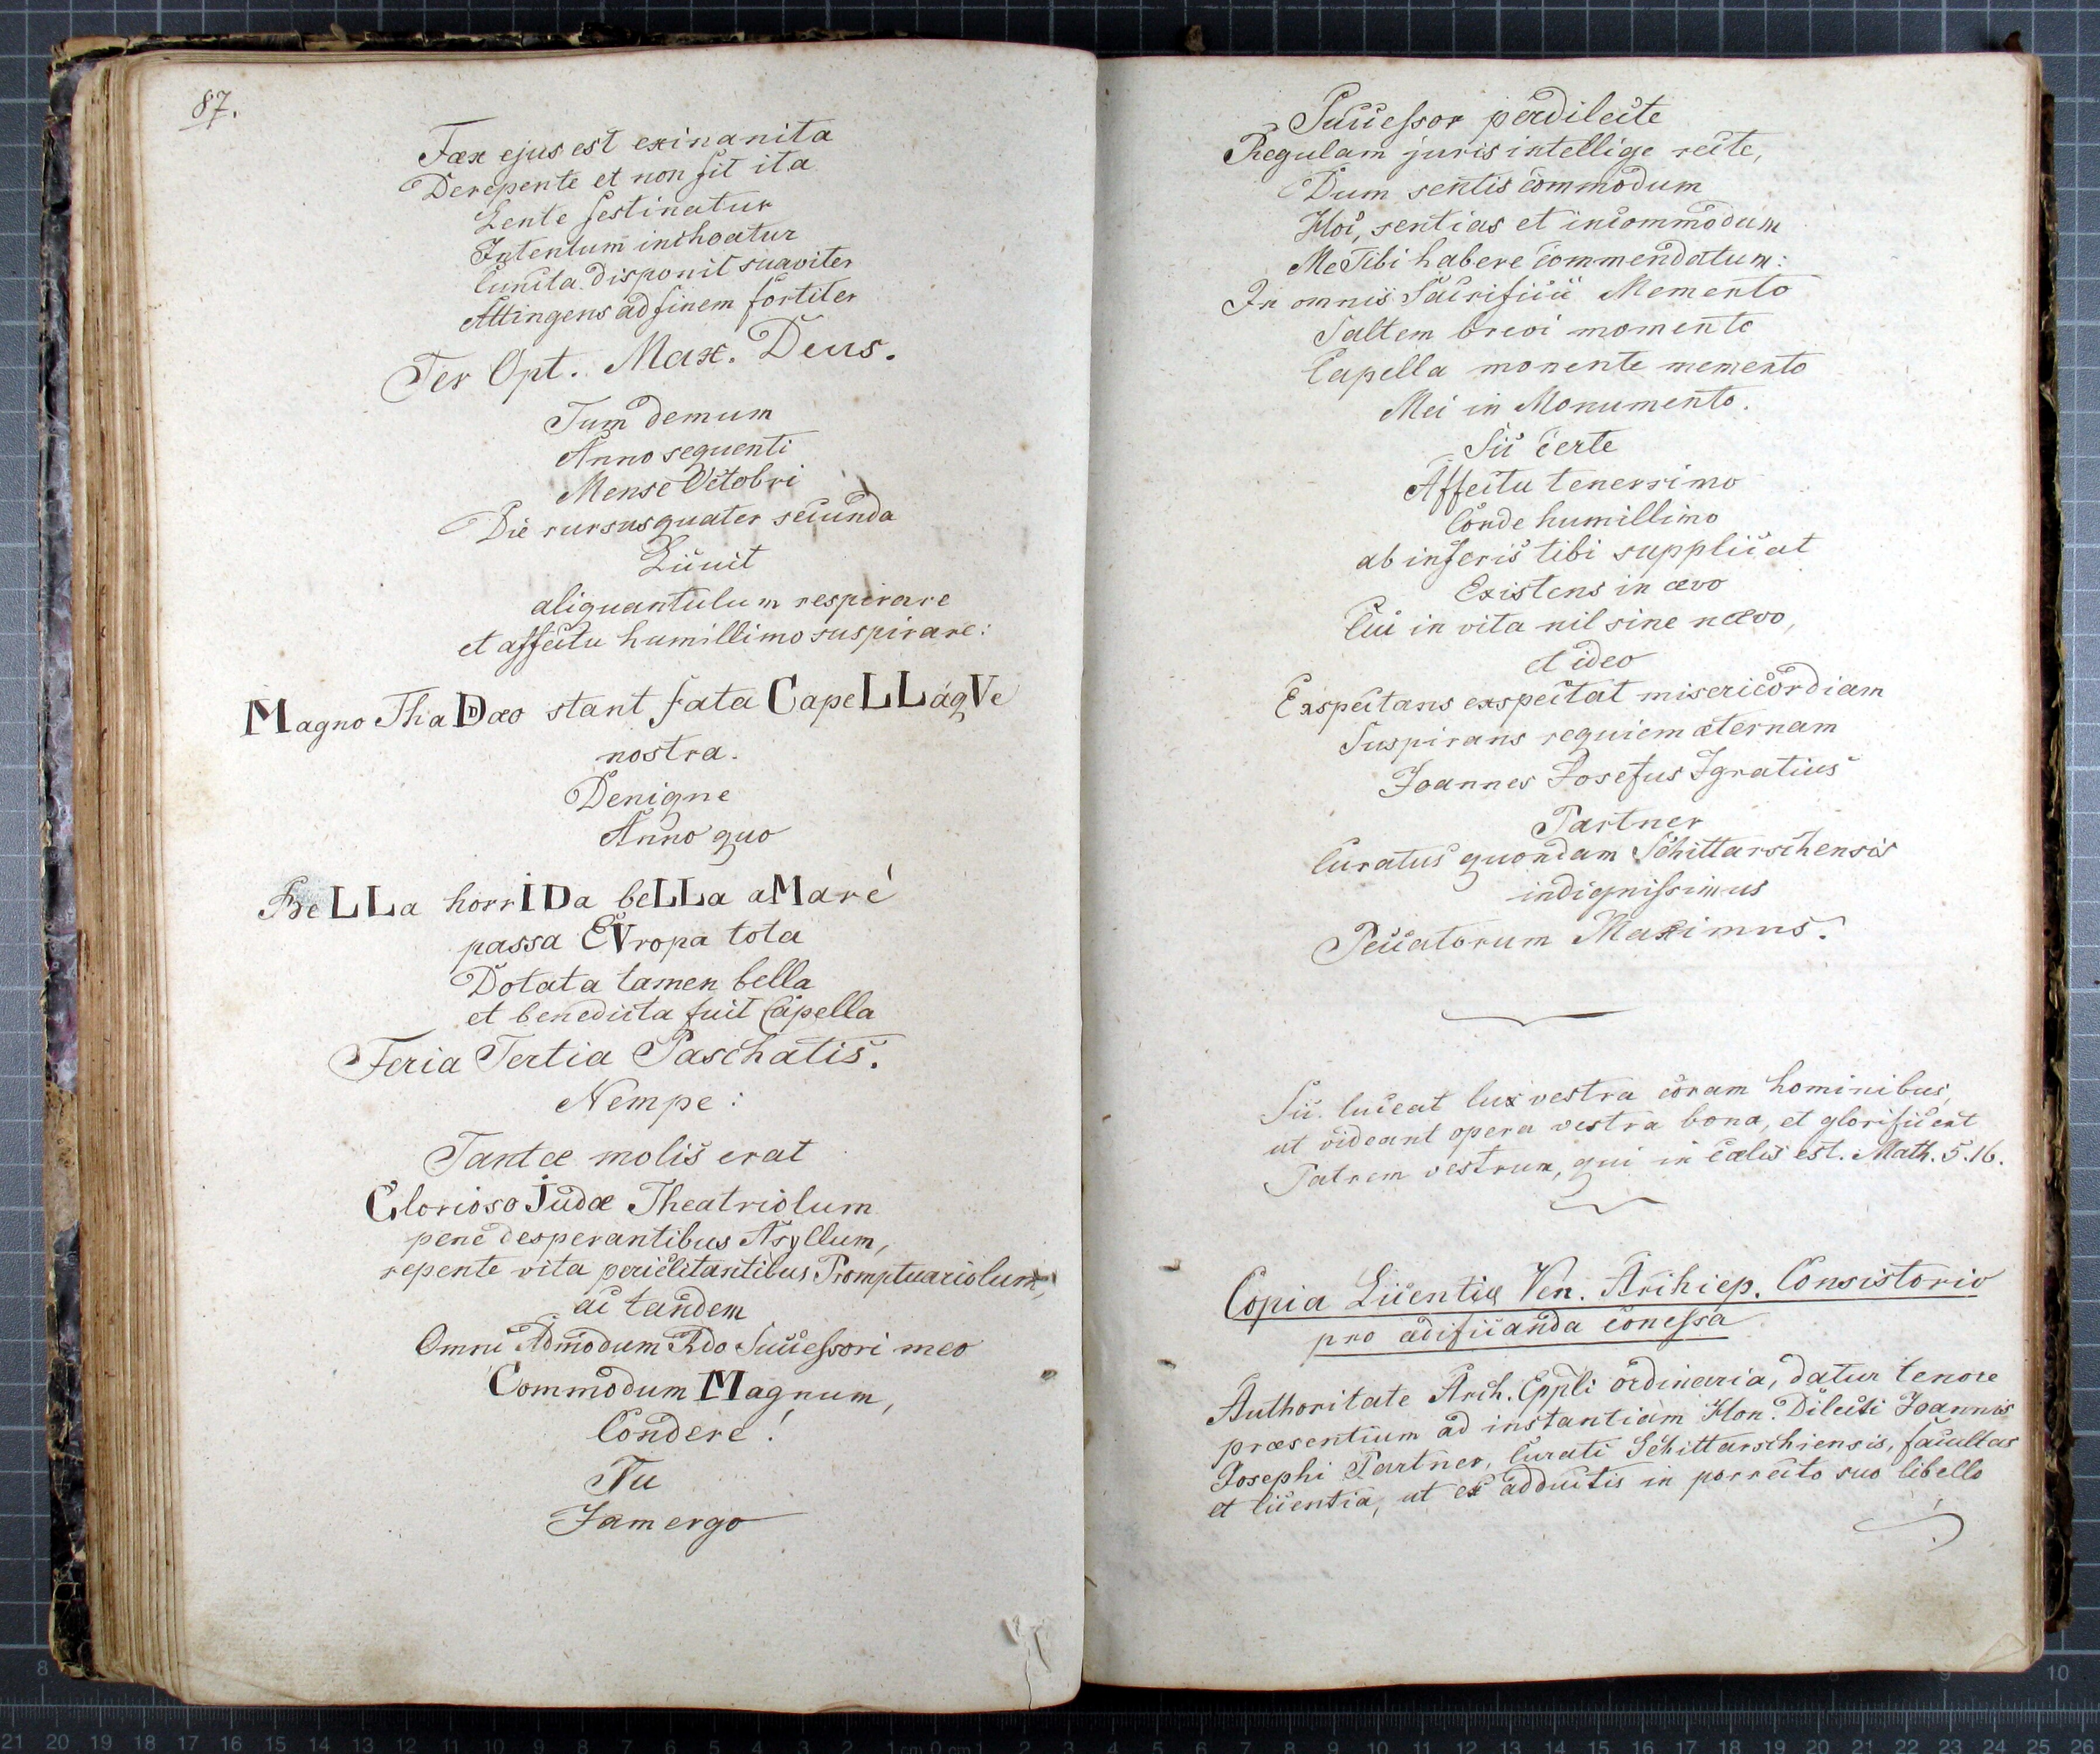 87.
Fæx ejus est exinanita
Derepente et non fit ita
Lente festinatur
Intentum inchoatur
Cuncta disponit suaviter
Attingens ad finem fortiter
Ter Opt. Max. Deus.
Tum demum
Anno sequenti
Mense Octobri
Die rursus quater secunda
Licuit
aliquantulum respirare
et affectu humillimo suspirare:
Magno ThaDæo stant fata CapeLLáqVe
nostra.
Benigne
Anno quo
BeLLa horrIDa beLLa aMarè
passa EVropa tota
Dotata tamen bella
et benedicta fuit Capella
Feria Tertia Paschatis.
Nempe:
Tantæ molis erat
Glorioso Judæ Theatriolum
penè desperantibus Asyllum,
repente vita periclitantibus Promptuariolum,
ac tandem
Omni Admodum Rdo Successori meo
Commodum Magnum,
Condere!
Tu
Jam ergo
Successor perdilecte
Regulam juris intellige recte,
Dum sentis commodum
Hoc, sentias et incommodum
Me Tibi habere commendatum:
In omnis Sacrificii Memento
Saltem brevi momento
Capella monente memento
Mei in Monumento.
Sic certe
Affectu tenerrimo
Corde humillimo
ab inferis tibi supplicat
Existens in ævo
Cui in vita nil sine nævo,
et ideo
Exspectans exspectat misericordiam
Suspirans requiem æternam
Joannes Josefus Ignatius
Partner
Curatus quondam Schittarschensis
indignissimus
Peccatorum Maximus.
Sic luceat lux vestra coram hominibus,
ut videant opera vestra bona, et glorificent
Patrem vestrum, qui in Cælis est. Math. 5. 16.
Copia Licentiæ Ven. Archiep. Consistorio
pro ædificanda concessa
Authoritate Arch. Eppli ordinaria, datur tenore
præsentium ad instantiam Hon. Dilecti Joannis
Josephi Partner, Curati Schittarschiensis, facultas
et licentia, ut ex adductis in porrecto suo libello